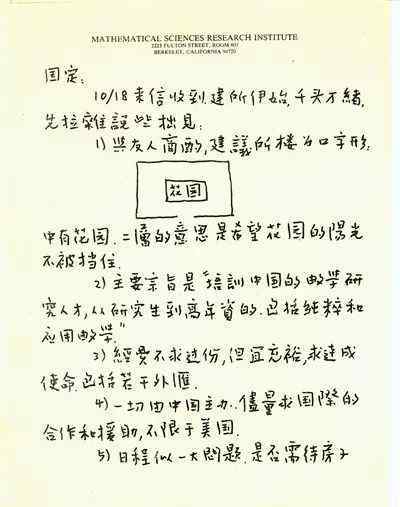 MATHEMATICAL SCIENCES RESEARCH INSTITUTE
2223 FULTON STREET, ROOM 603
BERKELEY, CALIFORNIA 94720
国定:
10/18来信收到.建所伊始,千头万緒,
先拉雜説些拙見:
1) 與友人商酌,建議所楼为口字形:
花园
中有花园.二層的意思是希望花园的陽光
不被挡住.
2) 主要宗旨是“培訓中国的数学研
究人才,从研究生到高年資的.包括純粹和
应用数学.”
3) 經費不求过份,但宜充裕,求达成
使命.包括若干外匯.
4) 一切由中国主办.儘量求国際的
合作和援助,不限于美国.
5) 日程似一大問題.是否需待房子